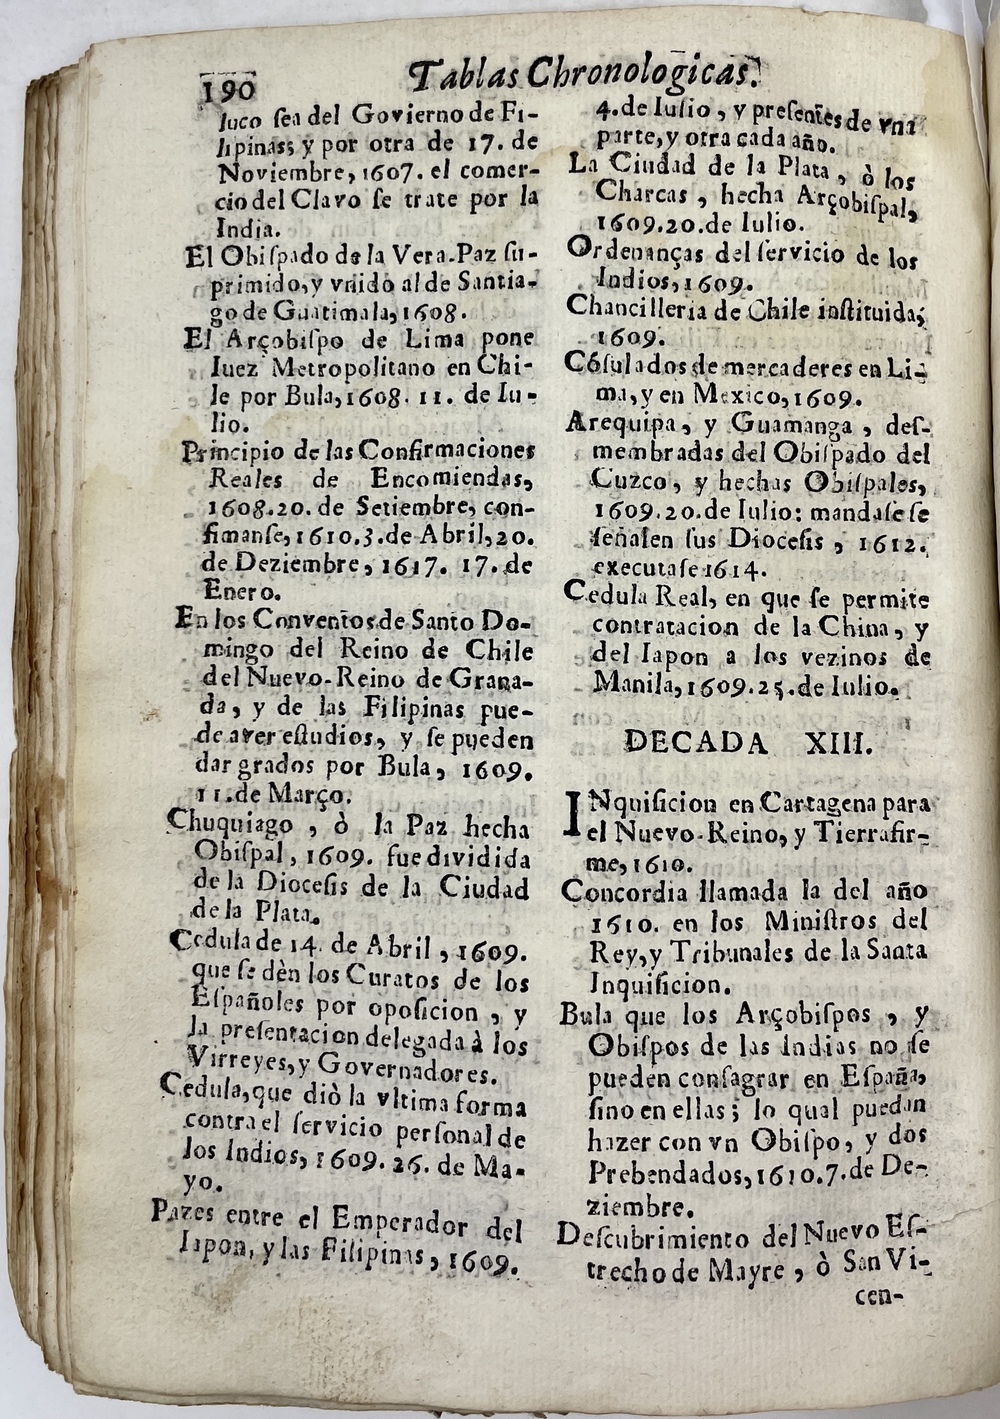 190
Tablas Chronologicas.
luco sea del Govierno de Fi-
lipinas; y por otra de 17. de
Noviembre, 1607. el comer-
cio del Clavo se trate por la
India.
El Obispado de la Vera-Paz su-
primido, y vnido al de Santia-
go de Guatimala, 1608.
El Arçobispo de Lima pone
Iuez Metropolitano en Chi-
le por Bula, 1608. 11. de Iu-
lio.
Principio de las Confirmaciones
Reales de Encomiendas,
1608. 20. de Setiembre, con-
fimanse, 1610. 3. de Abril, 20.
de Deziembre, 1617. 17. de
Enero.
En los Conventos de Santo Do-
mingo del Reino de Chile
del Nuevo-Reino de Grana-
da, y de las Filipinas pue-
de aver estudios, y se pueden
dar grados por Bula, 1609.
11. de Março.
Chuquiago, ò la Paz hecha
Obispal, 1609. fue dividida
de la Diocesis de la Ciudad
de la Plata.
Cedula de 14. de Abril, 1609.
que se dèn los Curatos de los
Españoles por oposicion, y
la presentacion delegada à los
Virreyes, y Governadores.
Cedula, que diò la vltima forma
contra el servicio personal de
los Indios, 1609. 26. de Ma-
yo.
Pazes entre el Emperador del
Iapon, y las Filipinas, 1609.
4. de Iulio, y presentes de vna
parte, y otra cada año.
La Ciudad de la Plata, ò los
Charcas, hecha Arçobispal,
1609. 20. de Iulio.
Ordenanças del servicio de los
Indios, 1609.
Chancilleria de Chile instituida,
1609.
Cósulados de mercaderes en Li-
ma, y en Mexico, 1609.
Arequipa, y Guamanga, des-
membradas del Obispado del
Cuzco, y hechas Obispales,
1609. 20. de Iulio: mandase se
señalen sus Diocesis, 1612.
executase 1614.
Cedula Real, en que se permite
contratacion de la China, y
del Iapon a los vezinos de
Manila, 1609. 25. de Iulio.
DECADA XIII.
INquisicion en Cartagena para
el Nuevo-Reino, y Tierrafir-
me, 1610.
Concordia llamada la del año
1610. en los Ministros del
Rey, y Tribunales de la Santa
Inquisicion.
Bula que los Arçobispos, y
Obispos de las Indias no se
pueden consagrar en España,
sino en ellas; lo qual puedan
hazer con vn Obispo, y dos
Prebendados, 1610. 7. de De-
ziembre.
Descubrimiento del Nuevo Es-
trecho de Mayre, ò San Vi-
cen-